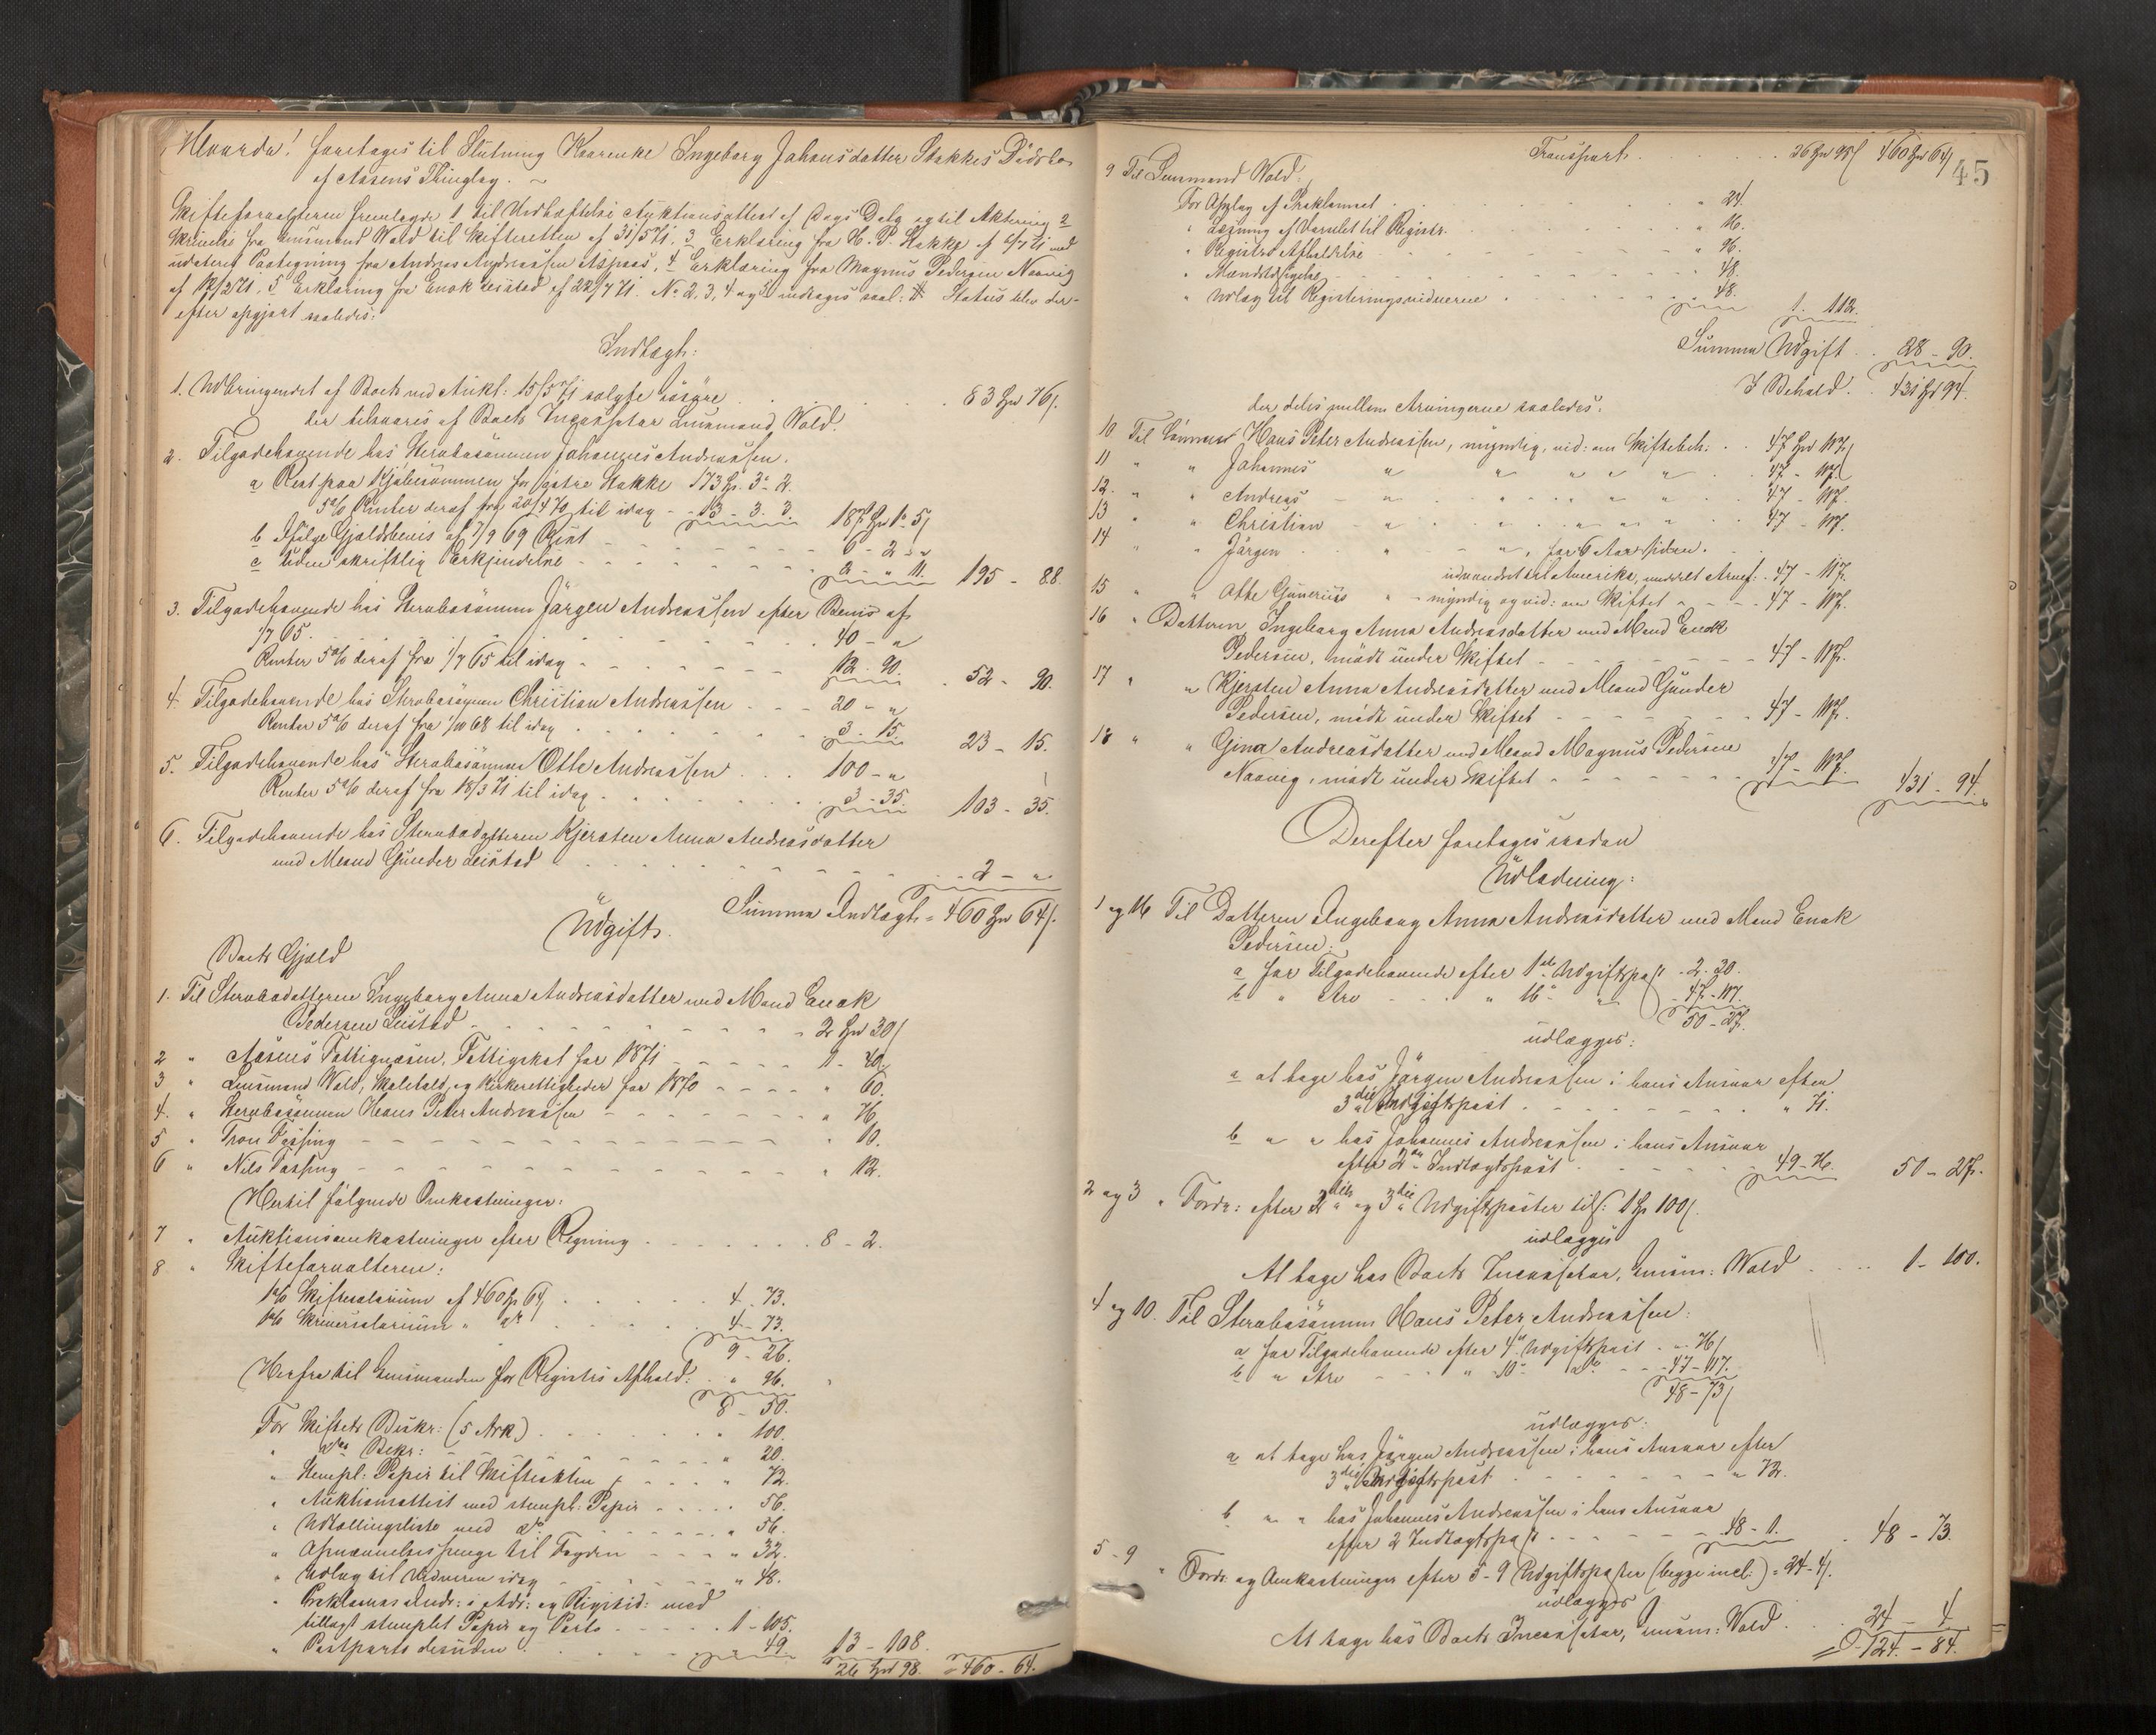 Hvorda! foretages til Slutning Kaarenke Ingeborg Johansdatter Stokkes Dødsbo
af Aasens Thinglag.
Skifteforvalteren fremlagde 1 til Vedhæftelse Auktionsattest af Dags Dato og til Aktering 2
Skrivelse fra Lensmand Wold til Skifteretten af 31/5 71, 3 Erklæring fra H. P. Stokke af 71 med
udateret Paategning fra Andreas Andreassen Aspaas, 4 Erklæring fra Magnus Pedersen Naavig
af 12/2 71, 5 Erklæring fra Enok Leistad af 22/7 71. No 2, 3, 4 og 5 indtages saal: # Status blev der-
efter opgjort saaledes:
Indtægt:
1. Udbringendet af Boets ved Aukt: 15/5 71 solgte Løsøre . . . 83 Spd 76 s.
der tilsvares af Boets Incassator Lensmand Wold.
2. Tilgodehavende hos Stervbosønnen Johannes Andreassen.
a Rest paa Kjøbesummen for Stokke 173 Sp. 3 - 2.
5 % Renter deraf fra 20/4 70 til idag - - 13 - 3. 3. 187 Spd 1 - 5
b Ifølge Gjældsbevis af 7/9 69 Rest 6 - 2 - "
c Uden skriftlig Erkjendelse 2 - " 11. 195 - 88.
3. Tilgodehavende hos Stervbosønnen Jørgen Andreassen efter Bevis af
1/7 65. 40 - "
Renter 5 % deraf fra 1/7 65 til idag 12 - 90. 52 - 90.
4. Tilgodehavende hos Stervbosønnen Christian Andreassen 20 - "
Renter 5 % deraf fra 68 til idag 3 - 15. 23 - 15.
5. Tilgodehavende hos Stervbosønnen Otto Andreassen 100 - "
Renter 5 % deraf fra 18/3 71 til idag 3 - 35. 103 - 35.
6. Tilgodehavende hos Stervbodatteren Kjersten Anna Andreasdatter
med Mand Gunder Leistad 2 - "
Summa Indtægt = 460 Spd 64 s.
Udgift.
Boets Gjæld
1. Til Stervbodatteren Ingeborg Anna Andreasdatter med Mand Enok
Pedersen Leistad 2 Spd 30
2 " Aasens Fattigvæsen, Fattigskat for 1871 1 - 40
3 " Lensmand Wold, Skolelød og Kirkerettigheder for 1870 " 60.
4. " Stervbosønnen Hans Peter Andreassen " 76
5 " Tron Væssing " 10.
6 " Nils Fossing " 12.
Hertil følgende Omkostninger:
7 " Auktionsomkostninger efter Regning 8 - 2.
8 " Skifteforvalteren:
1 % Skiftesalarium af 460 Sp 64 4 - 73.
1 % Skriversalarium " do 4 - 73.
9 - 26.
Herfra til Lensmanden for Registrs Afhold: " 96.
8 - 50.
For Skiftets Beskr: (5 Ark) " 100.
" des Bekr: " 20.
" Stempl: Papir til Skifteakten " 72.
" Auktionsattest med stempl: Papir 56.
" Udlodningsliste med do " 56.
" Opnævnelsespenge til Fogden " 32.
" Udlæg til Vidnerne idag " 48.
" Proklamas Indr: i Adr: og Rigstid: med
tillagt stemplet Papir og Porto 1 - 105.
" Postporto desuden 49. 13 - 108.
26 Spd 98. = 460 - 64.
45
Transport 26 Spd 98 s 460 Spd 64
9 Til Lensmand Wold.
For Opslag af Proklamaet " 24.
" Læsning af Varslet til Registr. " 16.
" Registrs Afholdelse " 96.
" Mandtilsigelse " 48.
" Udlæg til Registreringsvidnerne " 48. 1. 112.
Summa Udgift 28 - 90.
I Behold. 431 Spd 94.
der deles mellem Arvingerne saaledes:
10 Til Sønnen Hans Peter Andreassen, myndig, vid: om Skiftebeh: 47 Spd 117
11 " " Johannes " " " " 47 - 117
12. " " Andreas " " " " 47 - 117.
13 " " Christian " " " " 47 - 117.
14 " " Jørgen " ", for 6 Aar siden
udvandret til Amerika, meddelt Arvef: 47 - 117.
15 " " Otto Gunerius " - myndig og vid: om Skiftet 47 - 117.
16 " Datteren Ingeborg Anna Andreasdatter med Mand Enok
Pedersen, mødt under Skiftet 47 - 117.
17 " " Kjersten Anna Andreasdatter med Mand Gunder
Pedersen, mødt under Skiftet 47 - 117.
18 " " Gina Andreasdatter med Mand Magnus Pedersen
Naavig, mødt under Skiftet 47 - 117. 431 - 94.
Derefter foretages saadan
Udlodning:
1 og 16 Til Datteren Ingeborg Anna Andreasdatter med Mand Enok
Pedersen:
a for Tilgodehavende efter 1ste Udgiftspost 2 - 30.
b " Arv " 16 " " 47 - 117.
50 - 27.
udlægges:
a at tage hos Jørgen Andreassen i hans Ansvar efter
3die Indtægtspost " 71.
b " " hos Johannes Andreassen i hans Ansvar
efter 2en Indtægtspost 49 - 76. 50 - 27.
2 og 3 " Fordr: efter 2den og 3die Udgiftsposter tils: 1 Sp 100 s.
udlægges
At tage hos Boets Incassator, Lensm: Wold 1 - 100.
4 og 10. Til Stervbosønnen Hans Peter Andreassen:
a for Tilgodehavende efter 4de Udgiftspost " - 76
b " Arv " 10 " do 47 - 117.
48 - 73
udlægges:
a at tage hos Jørgen Andreassen i hans Ansvar efter
3die Indtægtspost " 72.
b " " hos Johannes Andreassen i hans Ansvar
efter 2 Indtægtspost 48 - 1. 48 - 73.
5 - 9 " Fordr: og Omkostninger efter 5 - 9 Udgiftsposter (begge incl:) = 24 - 4.
udlægges
At tage hos Boets Incassator, Lensm: Wold 24 - 4
= 124. - 84.